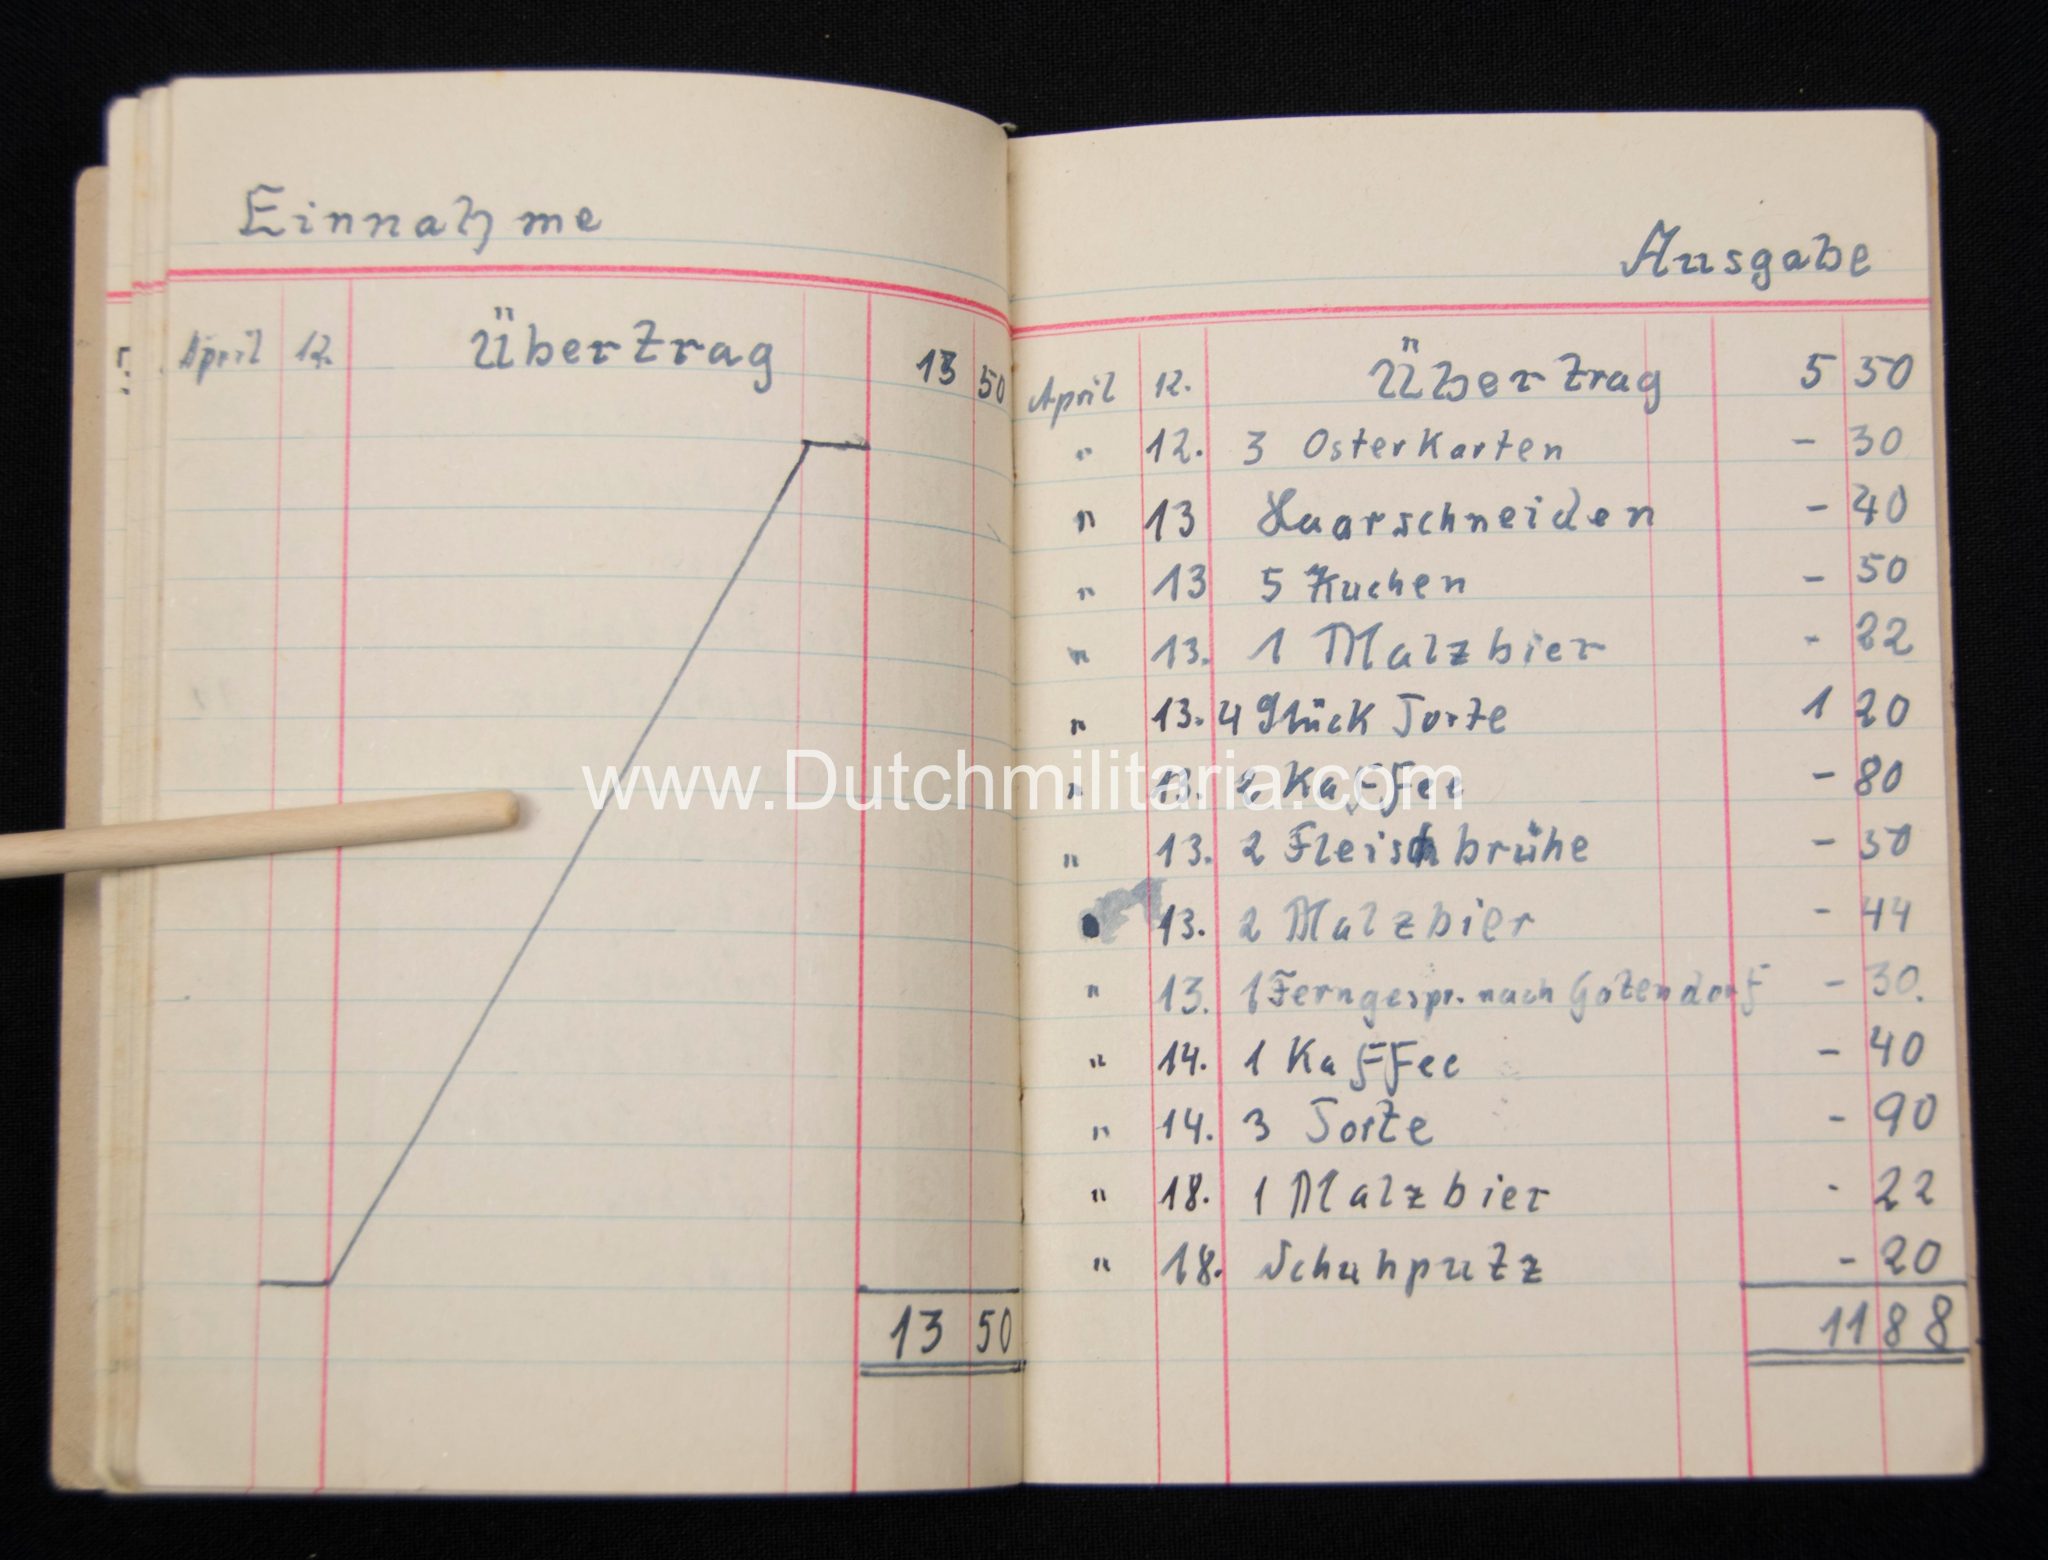 Einnahme
April 12. Übertrag 13 50
13 50
Ausgabe
April 12. Übertrag 5 50
" 12. 3 Osterkarten - 30
" 13 Haarschneiden - 40
" 13 5 Kuchen - 50
" 13. 1 Malzbier - 22
" 13. 4 Stück Torte 1 20
" 13. 2 Kaffee - 80
" 13. 2 Fleischbrühe - 50
13. 2 Malzbier - 44
" 13. 1 Ferngespr. nach Gotendorf - 30.
" 14. 1 Kaffee - 40
" 14. 3 Torte - 90
" 18. 1 Malzbier - 22
" 18. Schuhputz - 20
11 88
www.Dutchmilitaria.com